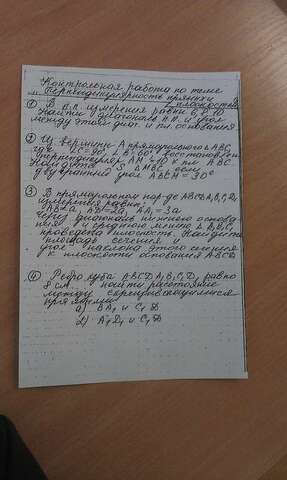 Контрольная работа по теме
"Перпендикулярность прямых
и плоскостей
① В п.п. измерения равны 6, 8, 10
Найти диагональ п.п. и угол
между этой диаг. и пл. основания
② Из вершины А прямоугольного △ABC,
где ∠C = 90° ∠B = 60° восстановлен
перпендикуляр AM к пл. ABC
Найдите S △ если
двугранный угол ABCM = 30°
③ В прямоугольном пар-де ABCDA₁B₁C₁D₁
измерения равны:
AD = a, AB = 2a, AA₁ = 3a
Через диагональ нижнего основа-
ния и середину
проведена плоскость. Найдите
площадь сечения и
угол наклона этого сечения
к плоскости основания ABCD
④ Ребро куба ABCDA₁B₁C₁D₁ равно
8 см. Найти расстояние
между скрещивающимися
прямыми
а) BA₁ и C₁D
2) A₁D₁ и C₁D